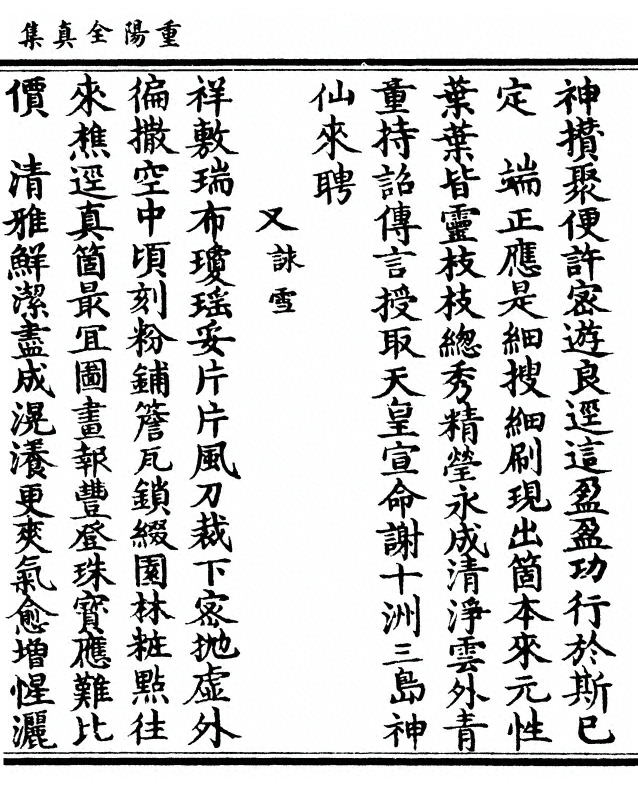 重陽全真集
神攢聚便許宻遊良逕這盈盈功行於斯已
定　端正應是細搜細刷現出箇本來元性
葉葉皆靈枝枝緫秀精瑩永成清淨雲外青
童持詔傳言授取天皇宣命謝十洲三島神
仙來聘
又詠雪
祥敷瑞布瓊瑶妥片片風刀裁下宻抛虚外
徧撒空中頃刻粉鋪簷瓦鎖綴園林粧點往
來樵逕真箇最冝圖畫報豐登珠寳應難比
價　清雅鮮潔盡成滉瀁更爽氣愈增惺灑